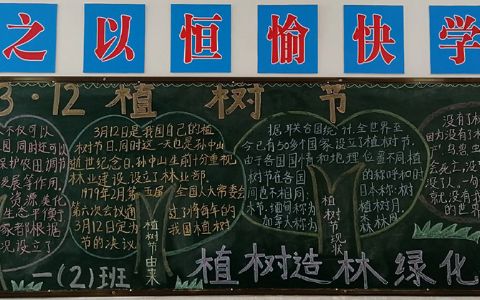 之以恒愉快学
3·12植树节
不仅可以
因同时还可以
保护农田调节
发展等作用,
资源美化
生态平衡了
家都根据
况设立了
3月12日是我国自己的植
树节日,同时这一天也是孙中山
逝世纪念日。孙中山生前十分重视
林业建设设立了林业部,
1979年2月第五届全国人大常委会
第六次会议通过了将每年的
3月12日定为我国植树
节的决议
植树节由来
据联合国统计,全世界至
今已有50多个国家设立了植树节。
由于各国国情和地理位置不同植
树节在各国的称呼和时
间也不相同,日本称:树
木节,缅甸称为植树月,
加拿大称为森林周
植树节现状
没有了
因为没有了
会死亡,没
了人,一句
就没有我们
的世界
一(2)班
植树造林绿化